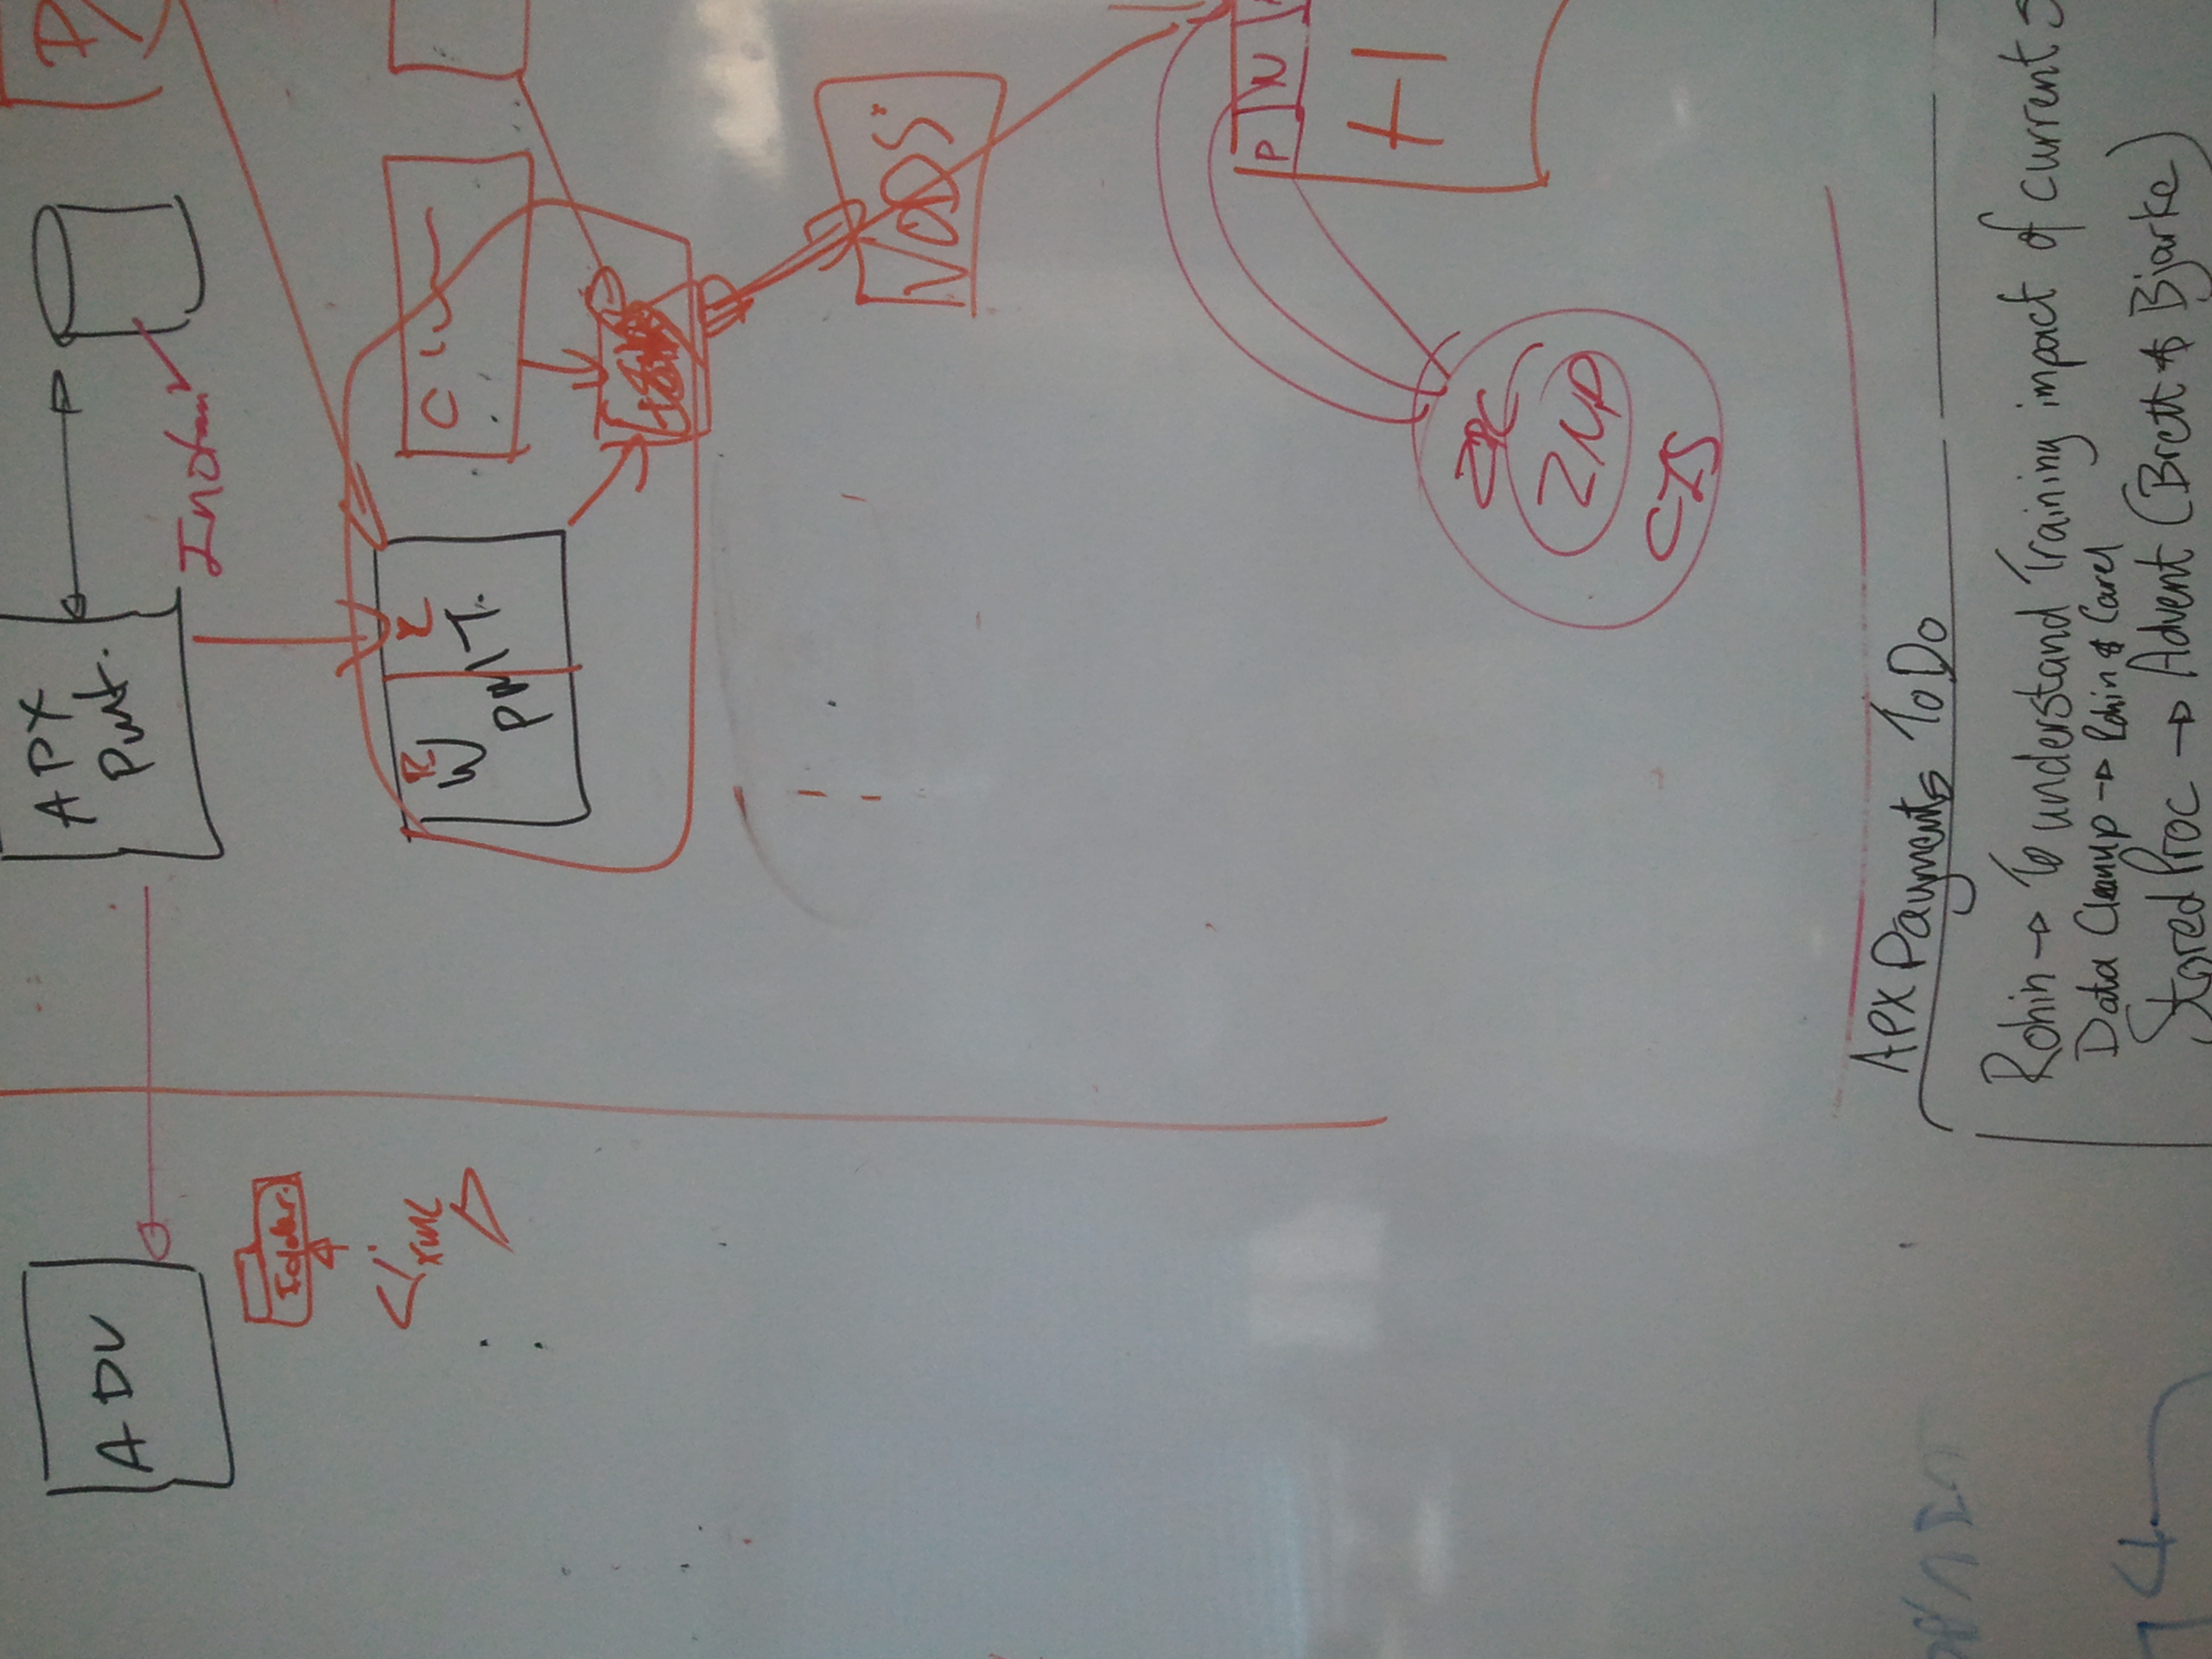 ADV
APX
Pmt.
Folder.
XML
R
W
PMT.
VODS
P
N
H
ZPC
ZNP
CIS
APX Payments To Do
Rohin → To understand Training impact of current
Data Cleanup → Rohin & Carel
Stored Proc → Advent (Brett & Bjarke)